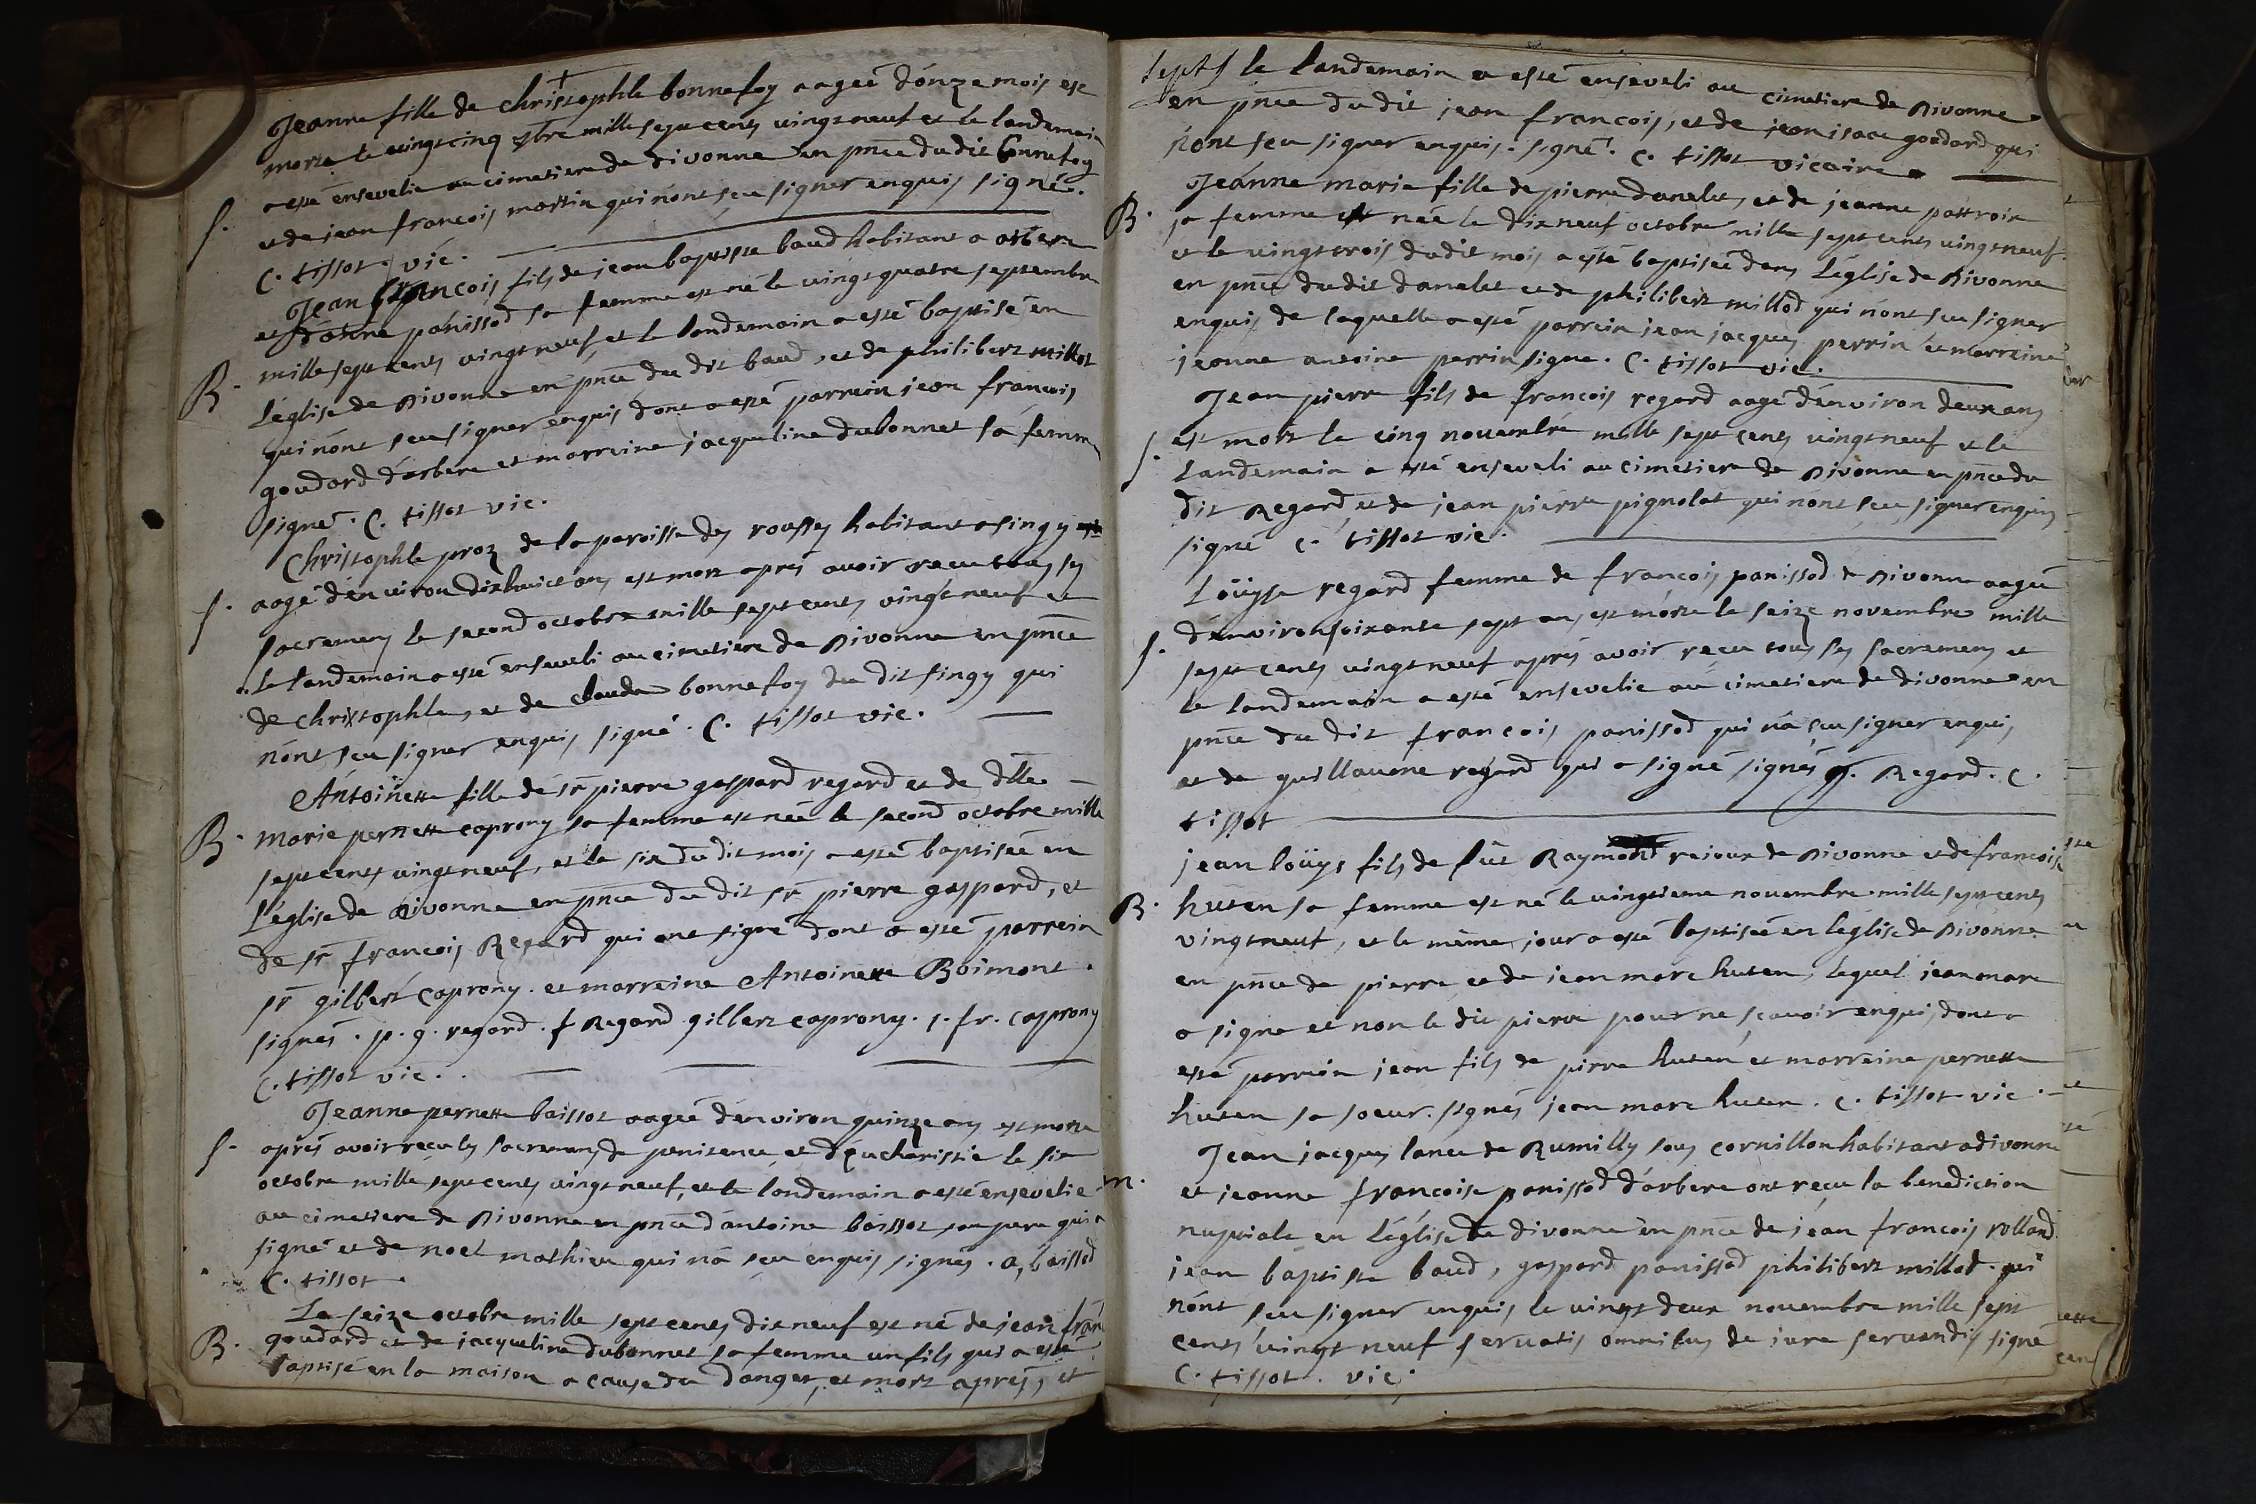 Jeanne fille de christophle bonnefoy aageé d'onze mois est
morte le vingt cinq 7bre mille sept cents vingt neuf et le landemain
a esté ensevelie au cimetiere de divonne en pnce du dit bonnefoy
S. et de jean francois martin qui n'ont sçu signer enquis signé.
C. tissot. vic.
Jean francois fils de jean baptiste baud habitant a arbere
et panissod sa femme est né le vingt quatre septembre
mille sept cents vingt neuf et le landemain a esté baptisé en
B. L'église de Divonne en pnce du dit baud, et de philibert millot
qui n'ont sçu signer enquis dont a esté parrein jean francois
goudard d'arbere et marreine jacqueline dubonnet sa femme
signé. C. tissot vic.
Christophle proz de la paroisse des rousses habitant a singy
S. aagé d'environ dixhuict ans est mort aprés avoir recu tous ses
sacremens le second octobre mille sept cents vingt neuf et
le landemain a esté enseveli au cimetiere de Divonne en pnce
de christophle, et de claude bonnefoy du dit singy qui
n'ont sçu signer enquis signé. C. tissot vic.
Antoinette fille de sr pierre gaspard regard et de dlle
B. marie pernette caprony sa femme est née le second octobre mille
sept cents vingt neuf, et le six du dit mois a esté baptiseé en
L'église de divonne en pnce du dit sr pierre gaspard, et
de sr francois Regard qui ont signé dont a esté parrein
sr gilbert caprony. et marreine Antoinette Boimont.
signés. p. g. regard. f Regard gilbert caprony. j. fr. caprony
C. tissot vic.
Jeanne pernette baissot aageé d'environ quinze ans est morte
S. aprés avoir reçu les sacremens de penitence et d'Eucharistie le six
octobre mille sept cents vingt neuf, et le landemain a esté ensevelie
au cimetiere de Divonne en pnce d'antoine baissot son pere qui a
signé et de noel mathieu qui n'a sçu enquis signés. a, baissod
C. tissot.
Le seize octobre mille sept cents dixneuf est né de jean fran
B. goudard et de jacqueline dubonnet sa femme un fils qui a esté
baptisé en la maison a cause du danger, et mort aprés, et
le landemain a esté enseveli au cimetiere de Divonne
en pnce du dit jean francois, et de jean isaac goudard qui
n'ont sçu signer enquis. signé. C. tissot vicaire
Jeanne marie fille de pierre danelet, et de jeanne
B. sa femme est née le dixneuf octobre mille sept cents vingt neuf.
et le vingt trois du dit mois a esté baptiseé dans L'église de Divonne
en pnce du dit danelet et de philibert millod qui n'ont sçu signer
enquis de laquelle a esté parrein jean jacques perrin et marreine
jeanne antoine perrin signe. C. tissot vic.
Jean pierre fils de francois regard aagé d'environ deux ans
S. est mort le cinq novembre mille sept cents vingt neuf et le
landemain a esté enseveli au cimetiere de Divonne en pnce du
dit Regard, et de jean pierre pignolet qui n'ont sçu signer enquis
signé C. tissot vic.
Loüyse regard femme de francois panissod de Divonne aageé
d'environ soixante sept ans, est morte le seize novembre mille
S. sept cents vingt neuf aprés avoir recu tous ses sacremens et
le landemain a esté ensevelie au cimetiere de divonne en
pnce du dit francois panissod qui n'a sçu signer enquis,
et de guillaume regard qui a signé signés g. Regard. C.
tissot
jean loüys fils de Raymont rejoux de Divonne et de francoise
B. huten sa femme est né le vingtieme novembre mille sept cents
vingt neuf, et le même jour a esté baptiseé en l'église de Divonne
en pnce de pierre, et de jean marc huten, lequel jean marc
a signe et non le dit pierre pour ne sçavoir enquis, dont a
esté parrein jean fils de pirre huten et marreine pernette
huten sa soeur. signés jean marc huten. C. tissot vic.
Jean jacques lance de Rumilly sous cornillon habitant a divonne
m. et jeanne francoise panissod d'arbere ont reçu la benediction
nuptiale en L'église de divonne en pnce de jean francois rolland
jean baptiste baud, gaspard panissod philibert millod. qui
n'ont sçu signer enquis le vingt deux novembre mille sept
cents vingt neuf servatis omnibus de jure servandis signé
C. tissot. vic.